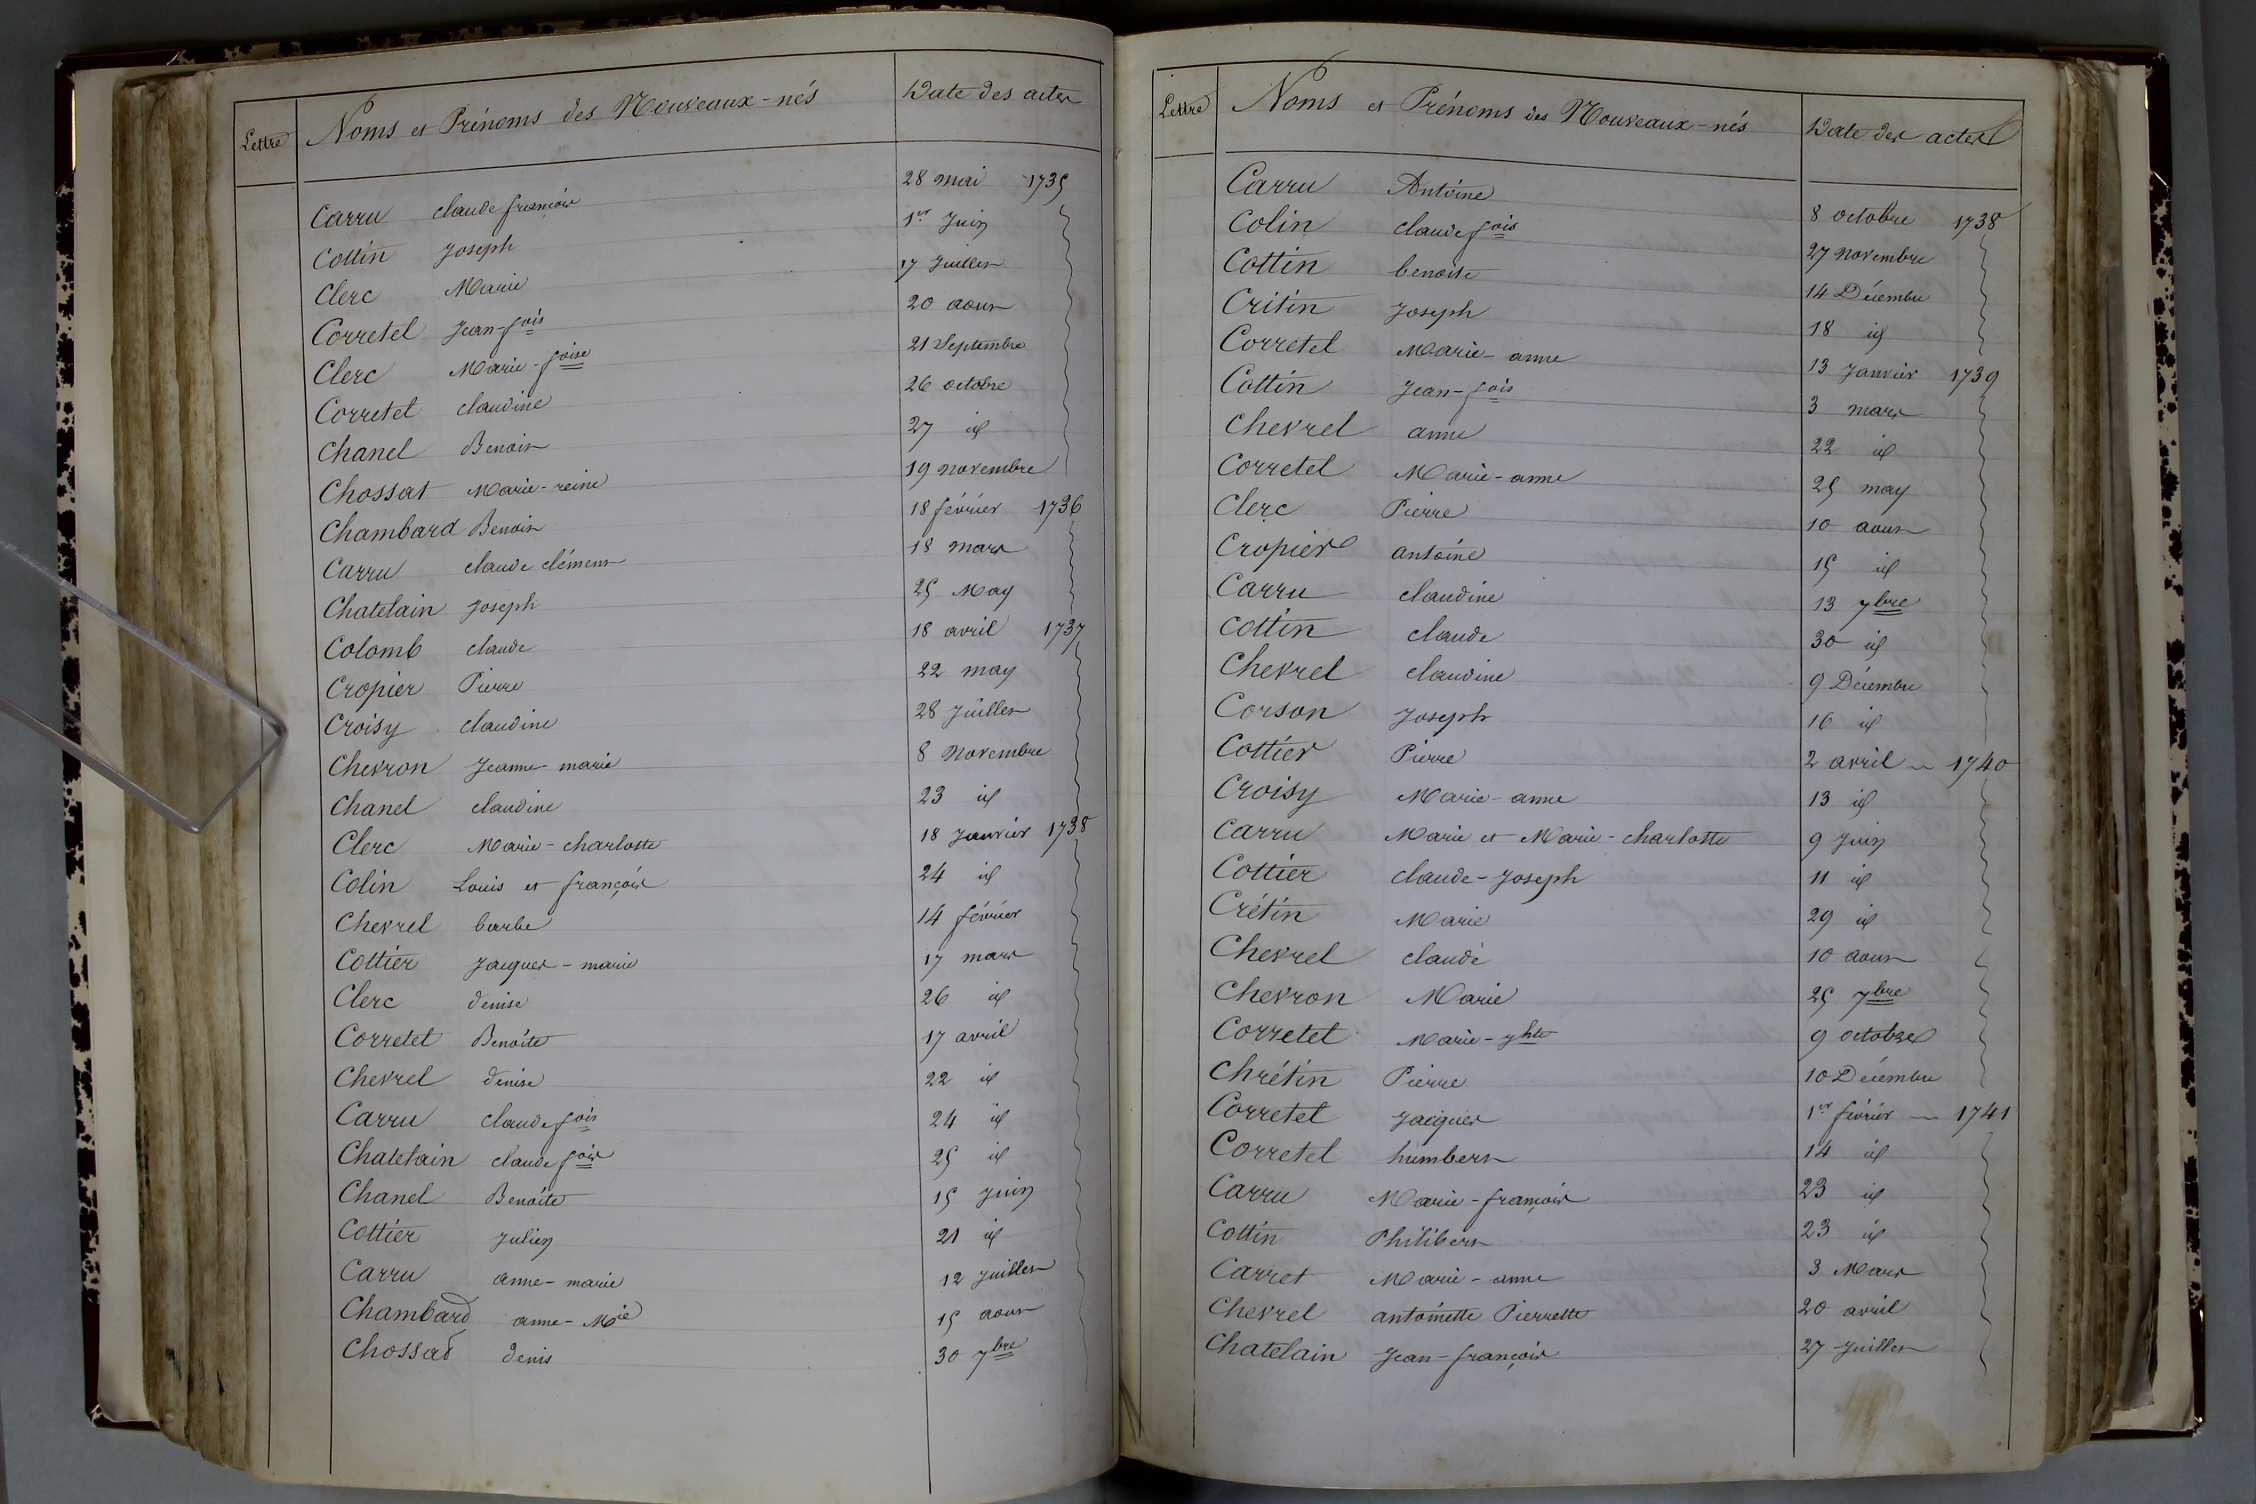 Lettre Noms et Prénoms des Nouveaux-nés Date des actes
Carru claude françois 28 mai 1735
Cottin Joseph 1er Juin
Clerc Marie 17 Juillet
Corretel Jean-fois 20 aout
Clerc Marie-foise 21 Septembre
Corretet claudine 26 octobre
Chanel Benoit 27 id
Chossat Marie-reine 19 novembre
Chambard Benoit 18 février 1736
Carru claude clément 18 mars
Chatelain Joseph 25 May
Colomb claude 18 avril 1737
Cropier Pierre 22 may
Croisy claudine 28 Juillet
Chevron Jeanne-marie 8 novembre
Chanel claudine 23 id
Clerc Marie-charlotte 18 Janvier 1738
Colin Louis et françois 24 id
Chevrel barbe 14 février
Cottier Jacques-marie 17 mars
Clerc denise 26 id
Corretet Benoite 17 avril
Chevrel denise 22 id
Carru claude fois 24 id
Chatelain claude fois 25 id
Chanel Benoite 15 Juin
Cottier Julien 21 id
Carru anne-marie 12 Juillet
Chambard anne-Mie 15 aout
Chossat denis 30 7bre
Lettre Noms et Prénoms des Nouveaux-nés Date des actes
Carru Antoine 8 octobre 1738
Colin claude fois 27 novembre
Cottin benoite 14 Décembre
Critin Joseph 18 id
Corretel Marie-anne 13 Janvier 1739
Cottin Jean-fois 3 mars
Chevrel anne 22 id
Corretel Marie-anne 25 may
Clerc Pierre 10 aout
Cropier antoine 15 id
Carru claudine 13 7bre
Cottin claude 30 id
Chevrel claudine 9 Décembre
Corson Joseph 16 id
Cottier Pierre 2 avril 1740
Croisy Marie-anne 13 id
Carru Marie et Marie-charlotte 9 Juin
Cottier claude-Joseph 11 id
Crétin Marie 29 id
Chevrel claude 10 aout
Chevron Marie 25 7bre
Corretet Marie-yhte 9 octobre
Chrétin Pierre 10 Décembre
Corretet Jacques 1er février 1741
Corretel humbert 14 id
Carru Marie-françois 23 id
Cottin Philibert 23 id
Carret Marie-anne 3 Mars
Chevrel antoinette Pierrette 20 avril
Chatelain Jean-françois 27 Juillet